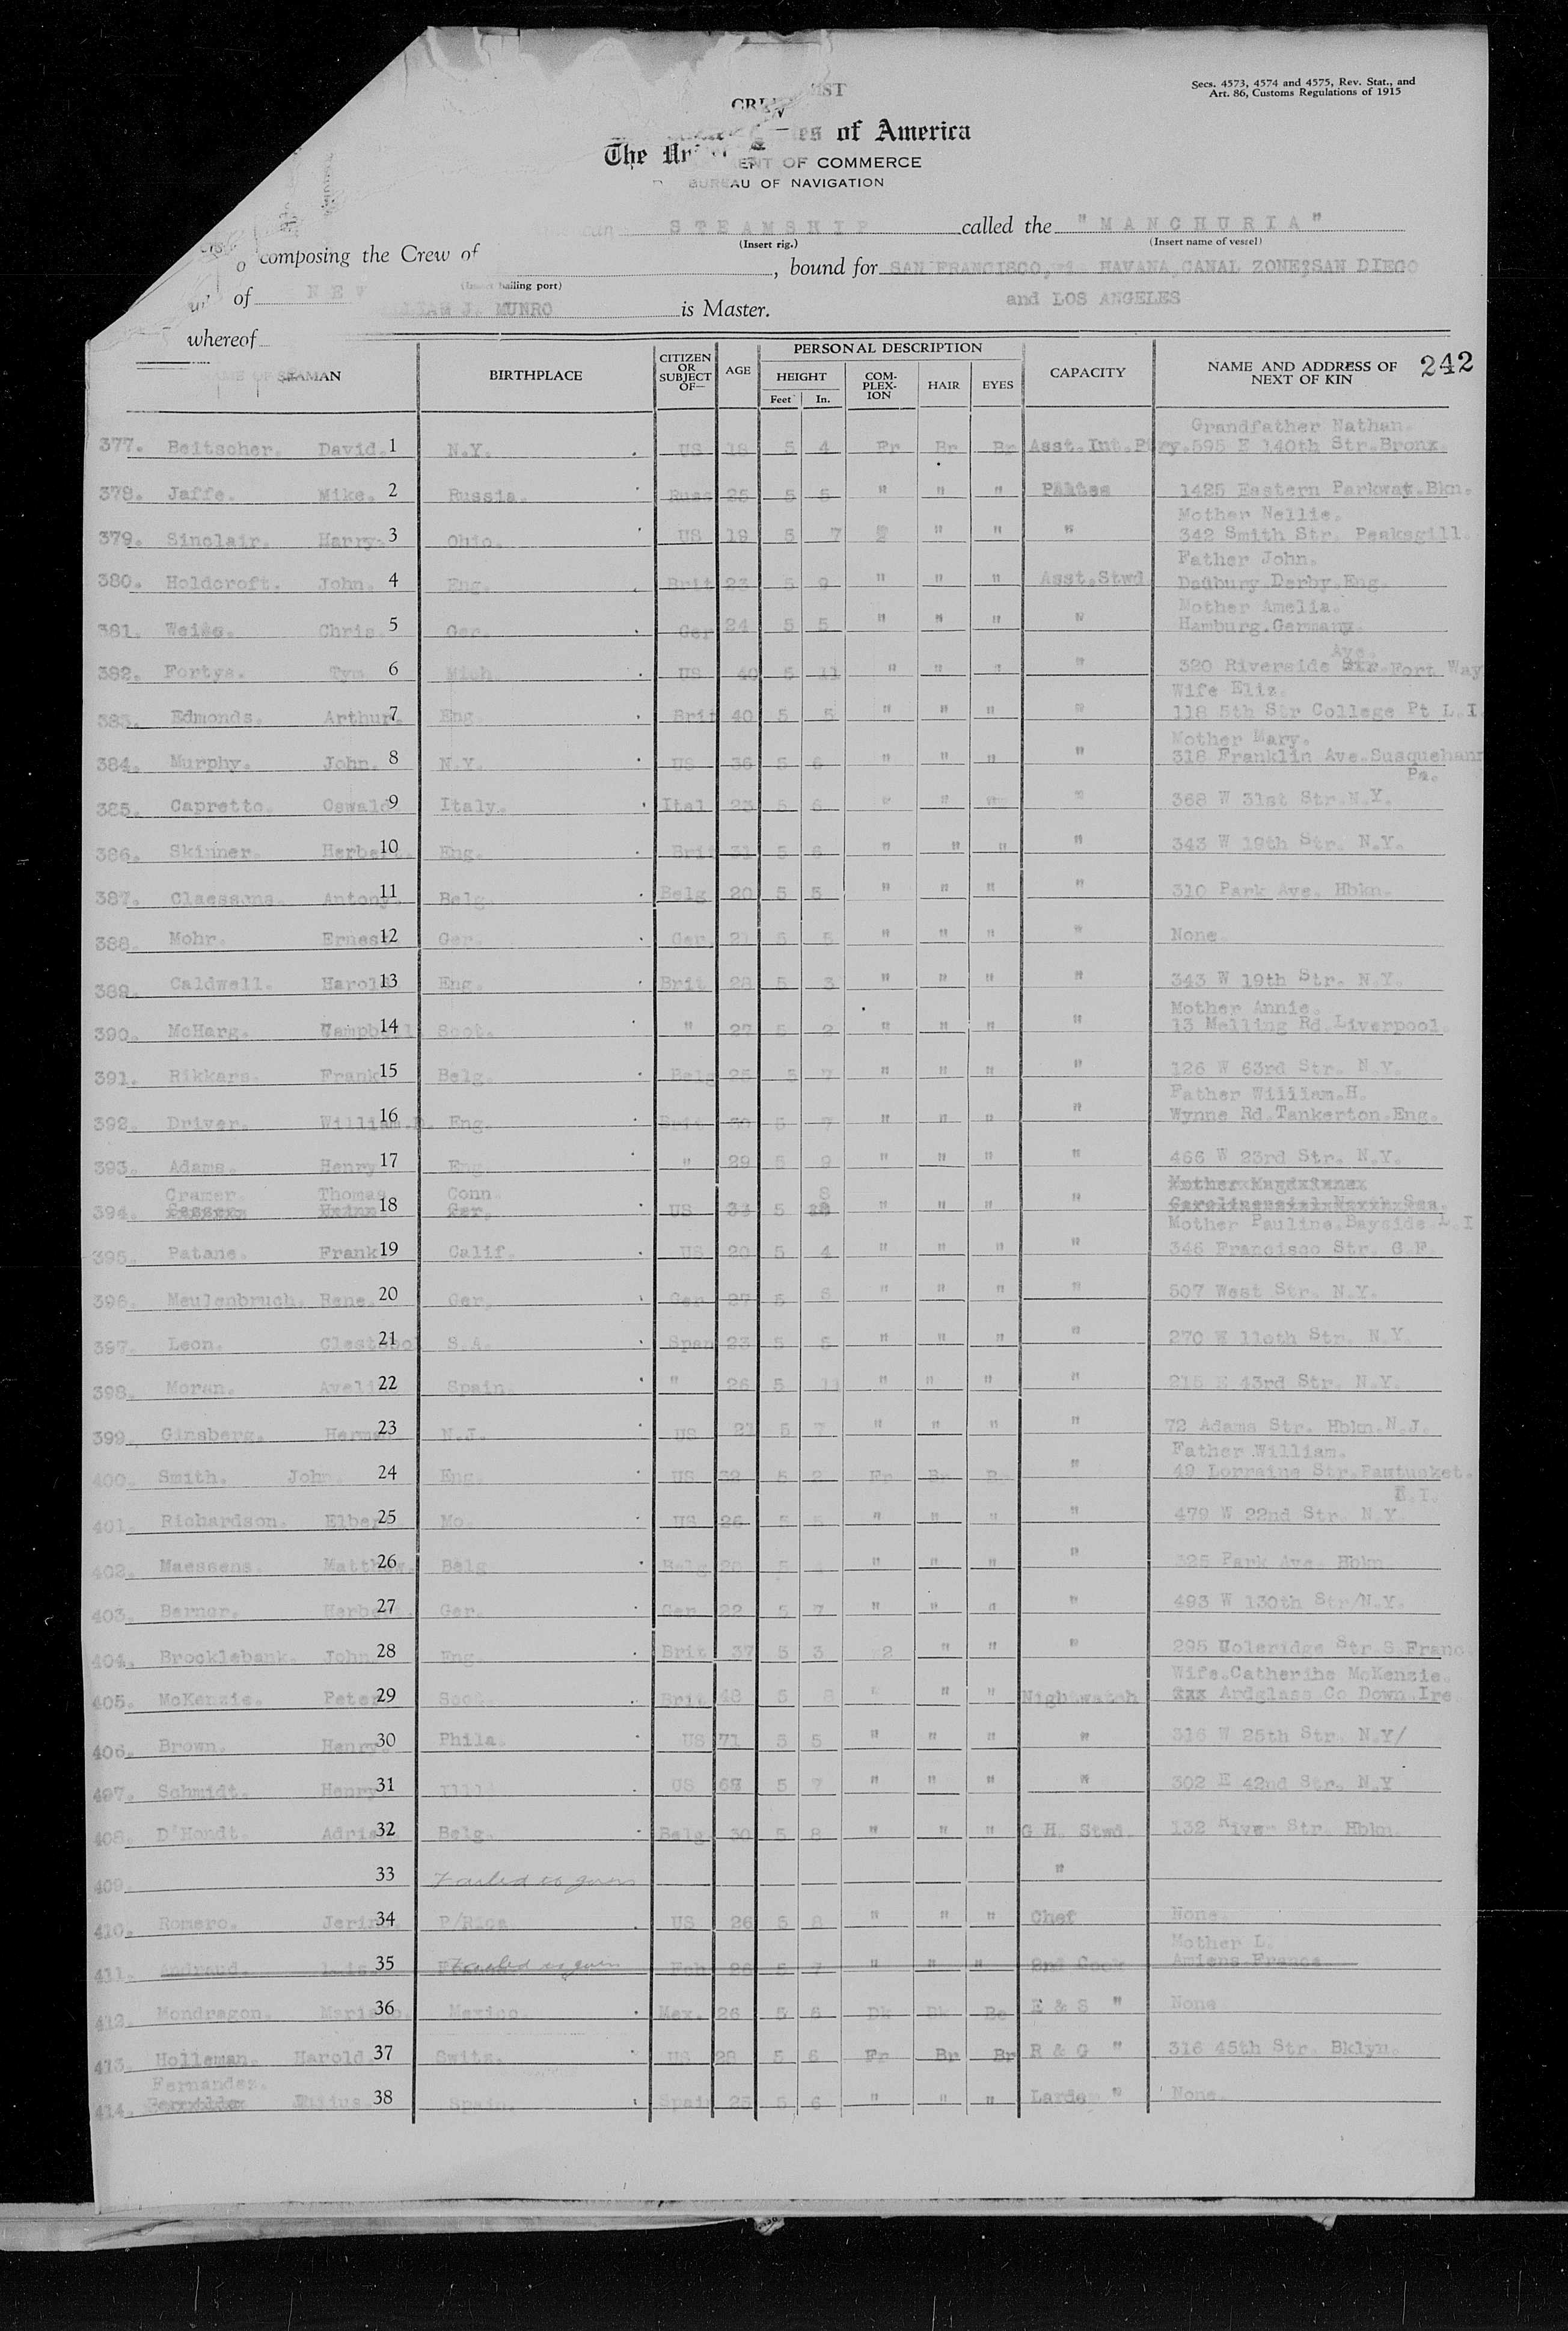 Secs. 4573, 4574 and 4575, Rev. Stat., and
Art. 86, Customs Regulations of 1915
The of America
OF COMMERCE
BUREAU OF NAVIGATION
composing the Crew of STEAMSHIP called the "MANCHURIA"
(Insert rig.) (Insert name of vessel)
of NEW , bound for SAN FRANCISCO, HAVANA, CANAL ZONE, SAN DIEGO
(Insert hailing port)
and LOS ANGELES
whereof J. MUNRO is Master.
NAME OF SEAMAN BIRTHPLACE CITIZEN OR SUBJECT OF— AGE PERSONAL DESCRIPTION HEIGHT Feet In. COMPLEXION HAIR EYES CAPACITY NAME AND ADDRESS OF NEXT OF KIN 242
Grandfather Nathan.
377. Beitscher. David. 1 N.Y. US 18 5 4 Fr Br Br Asst.Int.Ptry. 595 E 140th Str.Bronx.
378. Jaffe. Mike. 2 Russia. Russ 25 5 5 " " " 1425 Eastern Parkway.Bkn.
Mother Nellie.
379. Sinclair. Harry. 3 Ohio. US 19 5 7 " " " 342 Smith Str. Peaksgill.
Father John.
380. Holdcroft. John. 4 Eng. Brit 23 5 9 " " " Asst.Stwd. Derby.Eng.
Mother Amelia.
381. Weiss. Chris. 5 Ger. Ger 24 5 5 " " " " Hamburg.Germany.
Ave.
382. Fortys. Tym 6 Mich. US 40 5 11 " " " " 320 Riverside Str. Fort Way
Wife Eliz.
383. Edmonds. Arthur. 7 Eng. Brit 40 5 5 " " " " 118 5th Str College Pt L.I.
Mother Mary.
384. Murphy. John. 8 N.Y. US 36 5 6 " " " " 318 Franklin Ave.Susquehann
Pa.
385. Capretto. Oswald 9 Italy. Ital 23 5 6 " " " " 368 W 31st Str.N.Y.
386. Skinner. Herbert. 10 Eng. Brit 31 5 6 " " " " 343 W 19th Str. N.Y.
387. Claessens. Antony. 11 Belg. Belg 20 5 5 " " " " 310 Park Ave. Hbkn.
388. Mohr. Ernest 12 Ger. Ger. 21 5 5 " " " " None.
389. Caldwell. Harold 13 Eng. Brit 28 5 3 " " " " 343 W 19th Str. N.Y.
Mother Annie.
390. McHarg. Campbell 14 Scot. " 27 5 2 " " " " 13 Melling Rd.Liverpool.
391. Rikkars. Frank. 15 Belg. Belg 25 5 7 " " " " 126 W 63rd Str. N.Y.
Father William.H.
392. Driver. William. 16 Eng. Brit 30 5 7 " " " " Wynne Rd.Tankerton.Eng.
393. Adams. Henry 17 Eng. " 29 5 9 " " " " 466 W 23rd Str. N.Y.
Cramer. Thomas Conn. 8
394. 18 Ger. US 34 5 " " " "
Mother Pauline.Bayside L.I
395. Patane. Frank 19 Calif. US 20 5 4 " " " " 346 Francisco Str.
396. Meulenbruch. Rene. 20 Ger. Ger 27 5 8 " " " " 507 West Str. N.Y.
397. Leon. 21 S.A. Span 23 5 5 " " " " 270 E 110th Str. N.Y.
398. Moran. 22 Spain. " 26 5 11 " " " " 215 E 43rd Str. N.Y.
399. Ginsberg. Herman 23 N.J. US 21 5 7 " " " " 72 Adams Str. Hbkn.N.J.
Father William.
400. Smith. John. 24 Eng. US 32 5 2 Fr Br Br " 49 Lorraine Str.Pawtucket.
R.I.
401. Richardson. Elber 25 Mo. US 26 5 5 " " " " 479 W 22nd Str. N.Y.
402. Maessens. Matthew. 26 Belg. Belg 5 " " " " 325 Park Ave. Hbkn.
403. Berner. Herbert. 27 Ger. Ger 22 5 7 " " " " 493 W 130th Str/N.Y.
404. Brocklebank. John. 28 Eng. Brit 37 5 3 " " " 295 Coleridge Str.S Franc
Wife.Catherine McKenzie.
405. McKenzie. Peter 29 Scot. Brit 48 5 8 " " " Nightwatch Ardglass Co Down.Ire
406. Brown. Henry. 30 Phila. US 71 5 5 " " " " 316 W 25th Str. N.Y/
407. Schmidt. Henry. 31 Ill. US 5 7 " " " " 302 E 42nd Str. N.Y
408. D'Hondt. 32 Belg. Belg. 30 5 8 " " " G H. Stwd. 132 River Str. Hbkn.
409. 33 Failed to join "
410. Romero. 34 P/Rica. US 26 5 8 " " " Chef None.
Mother L.
411. Andraud. 35 Failed to join 26 5 7 " " " 2nd Cook Amiens France
412. Mondragon. 36 Mexico. Mex. 26 5 8 Dk Bk E & S " None
413. Holleman. Harold 37 Switz. US 28 5 6 Fr Br Br R & G " 316 45th Str. Bklyn.
Fernandez.
414. Julius 38 Spain. Spain 25 5 6 " " " Larde " None.